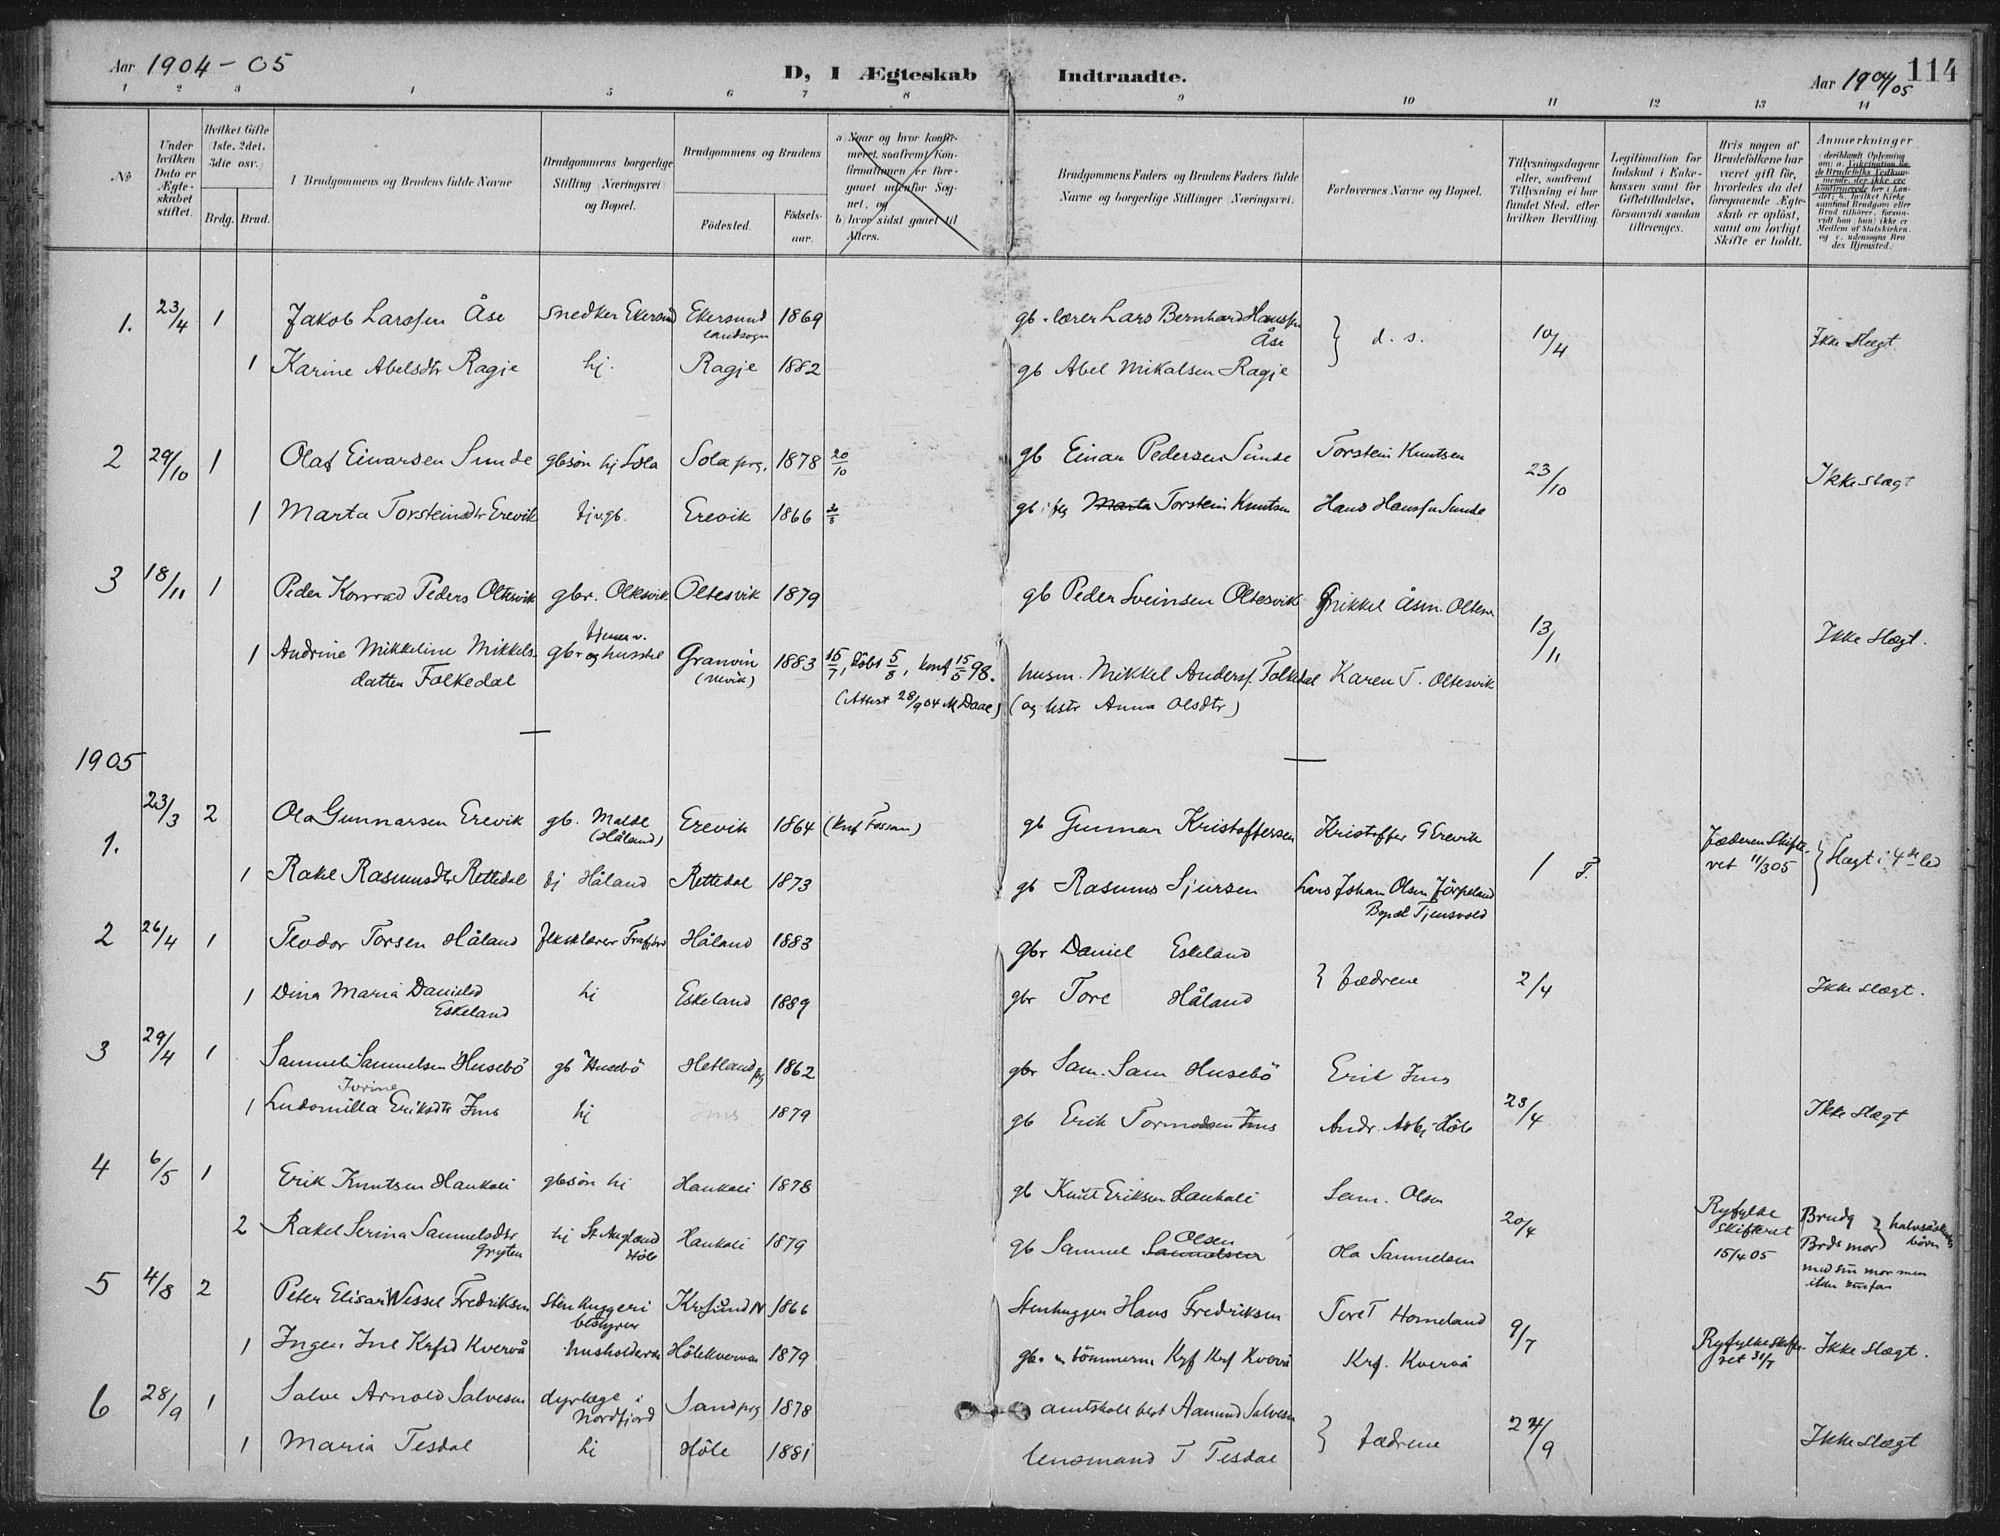 Aar 1904-05
D, I Ægteskab Indtraadte.
Aar 1904/05
114
1 2 3 4 5 6 7 8 9 10 11 12 13 14
№
Under hvilken Dato er Ægteskabet stiftet.
Hvilket Gifte (1ste, 2det, 3die osv.)
Brdg. Brud.
Brudgommens og Brudens fulde Navne
Brudgommens borgerlige Stilling (Næringsvei) og Bopæl.
Brudgommens og Brudens
Fødested.
Fødselsaar.
a Naar og hvor konfirmeret, saafremt Konfirmationen er foregaaet udenfor Sognet, og
b) hvor sidst gaaet til Alters.
Brudgommens Faders og Brudens Faders fulde Navne og borgerlige Stillinger (Næringsvei).
Forlovernes Navne og Bopæl.
Tillysningsdagene eller, saafremt Tillysning ei har fundet Sted, efter hvilken Bevilling.
Legitimation for Indskud i Enkekassen samt for Giftetilladelse, forsaavidt saadan tiltrænges.
Hvis nogen af Brudefolkene har været gift før, hvorledes da det foregaaende Ægteskab er opløst, samt om lovligt Skifte er holdt.
Anmerkninger
1. 23/4 1 Jakob Larssen Åse Snedker Ekersund Ekersund landsogn 1869 gb. lærer Lars Bernhard Hanssen Åse } d. s. 10/4 Ikke Slægt
1 Karine Abelsdtr Ragje hj. Ragje 1882 gb Abel Mikalsen Ragje
2 29/10 1 Olaf Einarsen Sunde gbsön hj Sola Sola prg. 1878 20/10 gb Einar Pedersen Sunde Torstein Knutsen 23/10 Ikke slægt
1 Marta Torsteinsdtr Erevik Erevik 1866 gb Torstein Knutsen Hans Hanssen Sunde
3 18/11 1 Peder Konrad Peders Oltesvik gbr. Oltesvik Oltesvik 1879 gb Peder Sveinsen Oltesvik Mikkel Åsm. Oltesv 13/11 Ikke Slægt.
1 Andrine Mikkeline Mikkels- gbr og husstel Granvin 1883 döbt 5/8, konf 15/5 98. husm. Mikkel Anders. Folkedal Karen T. Oltesvik
datter Folkedal (Attest 28/9 04 M Daae) (og hstr Anna Olsdtr)
1905
1. 23/3 2 Ola Gunnarsen Erevik gb. Malde (Håland) Erevik 1864 gb Gunnar Kristoffersen Kristoffer G Erevik 1 F. Jæderen Skifteret 11/3 05 } Slægt i 4de led
1 Rakel Rasmusdtr Rettedal tj Håland Rettedal 1873 gb Rasmus Sjursen Lars Johan Olsen Jörpeland
Bopæl Tjensvold
2 26/4 1 Teodor Torsen Håland Frafjord Håland 1883 gbr Daniel Eskeland } fædrene 2/4 Ikke slægt.
1 Dina Maria Danielsd Eskeland hj Eskeland 1889 gbr Tore Håland
3 29/4 1 Samuel Samuelsen Husebö gb Husebö Hetland prg 1862 gbr Sam. Sam Husebö Erik Ims 23/4 Ikke slægt
1 Ludomilla Torine Eriksdtr Ims hj Ims 1879 gb Erik Tormodsen Ims Andr. Asbj. Höle
4 6/5 1 Erik Knutsen Haukali gbsön hj Haukali 1878 gb Knut Eriksen Haukali Sam. Olsen 20/4 Ryfylke skifteret 15/4 05 Brudg Brds mor } halvsöskenbörn
2 Rakel Serina Samuelsdtr Gryten hj Höle Haukali 1879 gb Samuel Olsen Samuelsen Ola Samuelsen med sin mor men ikke sin far
5 4/8 2 Peter Elisar Wessel Fredriksen Stenhuggeri bestyrer Krfsund N 1866 Stenhugger Hans Fredriksen Tore T Homeland 9/7 Ryfylke skifteret 31/7 Ikke Slægt.
1 Inger Ine Krfsd Kvervå husholderske Höle Kvervå 1879 gb. tömmerm Krf Krf Kvervå Krf. Kvervå
6 28/9 1 Salve Arnold Salvesen dyrlæge i Nordfjord Sand prg 1878 Aanund Salvesen } fædrene 24/9 Ikke Slægt
1 Maria Tesdal hj Höle 1881 lensmand T Tesdal